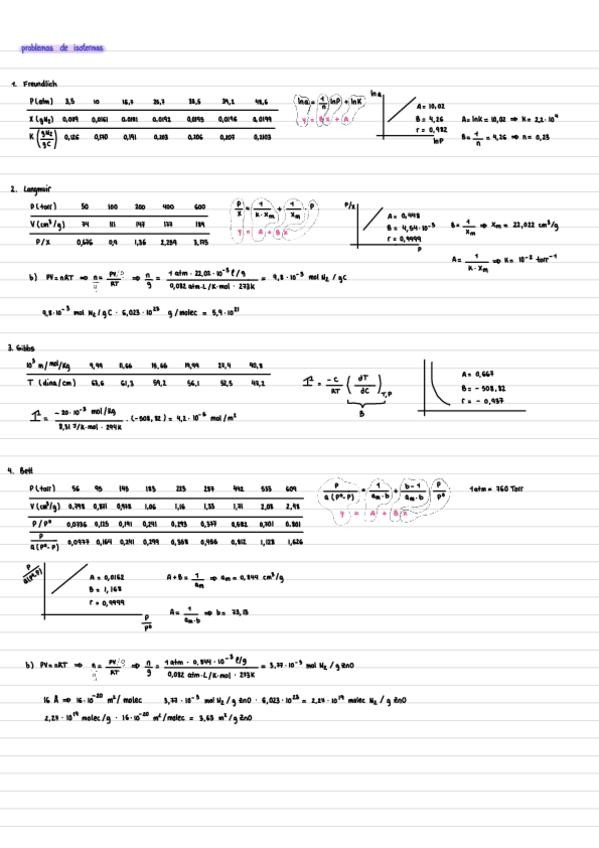 problemas de isotermas
1. Freundlich
P(atm) 3,5 10 16,7 25,7 33,5 39,2 48,6
X (gN₂) 0,019 0,0161 0,0181 0,0192 0,0195 0,0196 0,0199
K (gN₂/gC) 0,126 0,170 0,191 0,203 0,206 0,207 0,2103
ln a = 1/n lnP + lnK
y = Bx + A
ln a
lnP
A = 10,02
B = 4,26
r = 0,982
A = lnK = 10,02 ⇒ K = 2,2·10⁴
B = 1/n = 4,26 ⇒ n = 0,23
2. Langmuir
P(torr) 50 100 200 400 600
V(cm³/g) 74 111 147 177 189
P/X 0,676 0,9 1,36 2,259 3,175
P/X = 1/K·Xm + 1/Xm · P
y = A + Bx
P/X
P
A = 0,448
B = 4,54·10⁻³
r = 0,9999
B = 1/Xm ⇒ Xm = 22,022 cm³/g
A = 1/K·Xm ⇒ K = 10⁻² torr⁻¹
b) PV = nRT ⇒ n = PV/RT ⇒ n/g = 1 atm · 22,02·10⁻³ l/g / 0,082 atm·L/K·mol · 273K = 9,8·10⁻³ mol N₂/gC
9,8·10⁻³ mol N₂/gC · 6,023·10²³ g/molec = 5,9·10²¹
3. Gibbs
10³ m/mol/Kg 9,99 11,66 15,66 19,99 27,4 40,8
T (dina/cm) 63,6 61,3 59,2 56,1 52,5 47,2
Γ = -C/RT (dT/dC) T,P
B
A = 0,667
B = -508,82
r = -0,937
Γ = -20·10⁻³ mol/Kg / 8,31 J/K·mol · 294K · (-508,82) = 4,2·10⁻⁶ mol/m²
4. Bett
P(torr) 56 95 145 183 223 287 442 533 609
V(cm³/g) 0,798 0,871 0,978 1,06 1,16 1,33 1,71 2,08 2,48
P/P° 0,0736 0,125 0,191 0,241 0,293 0,377 0,582 0,701 0,801
P/a(P°-P) 0,0997 0,164 0,241 0,299 0,358 0,456 0,812 1,128 1,626
P/a(P°-P) = 1/am·b + b-1/am·b P/P°
y = A + Bx
1 atm = 760 Torr
P/a(P°-P)
P/P°
A = 0,0162
B = 1,168
r = 0,9999
A+B = 1/am ⇒ am = 0,844 cm³/g
A = 1/am·b ⇒ b = 73,13
b) PV = nRT ⇒ n = PV/RT ⇒ n/g = 1 atm · 0,844·10⁻³ l/g / 0,082 atm·L/K·mol · 273K = 3,77·10⁻⁵ mol N₂/g ZnO
16 Å ⇒ 16·10⁻²⁰ m²/molec 3,77·10⁻⁵ mol N₂/g ZnO · 6,023·10²³ = 2,27·10¹⁹ molec N₂/g ZnO
2,27·10¹⁹ molec/g · 16·10⁻²⁰ m²/molec = 3,63 m²/g ZnO